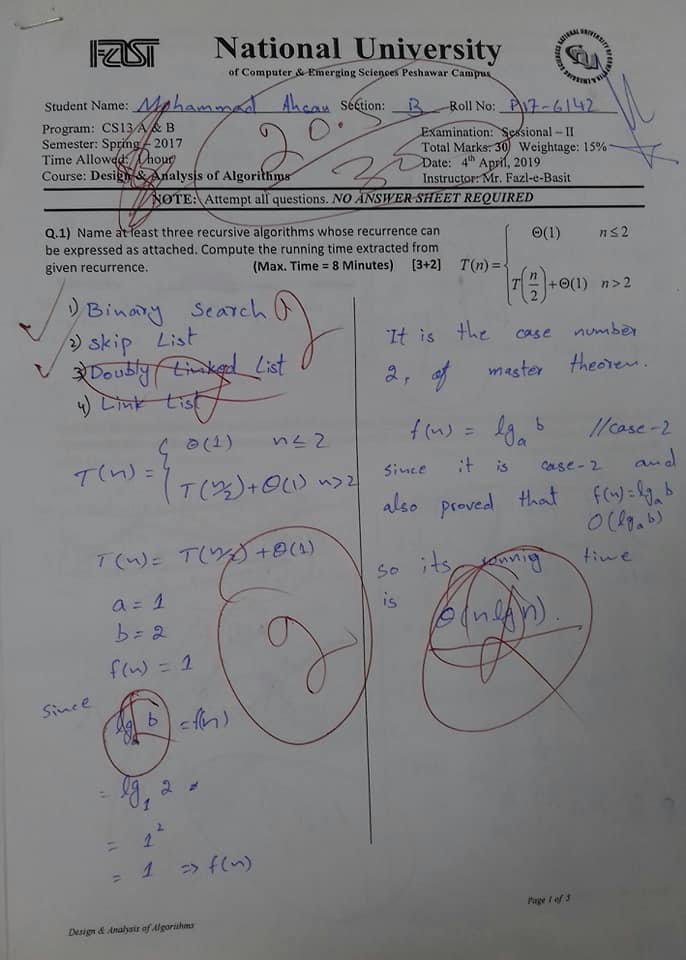 FAST
National University
of Computer & Emerging Sciences Peshawar Campus
Student Name: Mohammad Ahsan Section: B Roll No: P17-6142
Program: CS13 A & B
Semester: Spring - 2017
Time Allowed: 1 hour
Course: Design & Analysis of Algorithms
Examination: Sessional – II
Total Marks: 30 Weightage: 15%
Date: 4th April, 2019
Instructor: Mr. Fazl-e-Basit
20.5
30
NOTE: Attempt all questions. NO ANSWER SHEET REQUIRED
Q.1) Name at least three recursive algorithms whose recurrence can
be expressed as attached. Compute the running time extracted from
given recurrence. (Max. Time = 8 Minutes) [3+2]
T(n) = { Θ(1) n ≤ 2
T(n/2) + Θ(1) n > 2
1) Binary Search
2) Skip List
3) Doubly Linked List
4) Link List
T(n) = { Θ(1) n ≤ 2
T(n/2) + Θ(1) n>2
T(n) = T(n/2) + Θ(1)
a = 1
b = 2
f(n) = 1
Since
lg_a b = f(n)
= lg_1 2
= 1^2
= 1 => f(n)
It is the case number
2, of master theorem.
f(n) = lg_a b //case-2
since it is case-2 and
also proved that f(n)=lg_a b
O(lg_a b)
so its runnig time
is Θ(n lg n).
Page 1 of 5
Design & Analysis of Algorithms